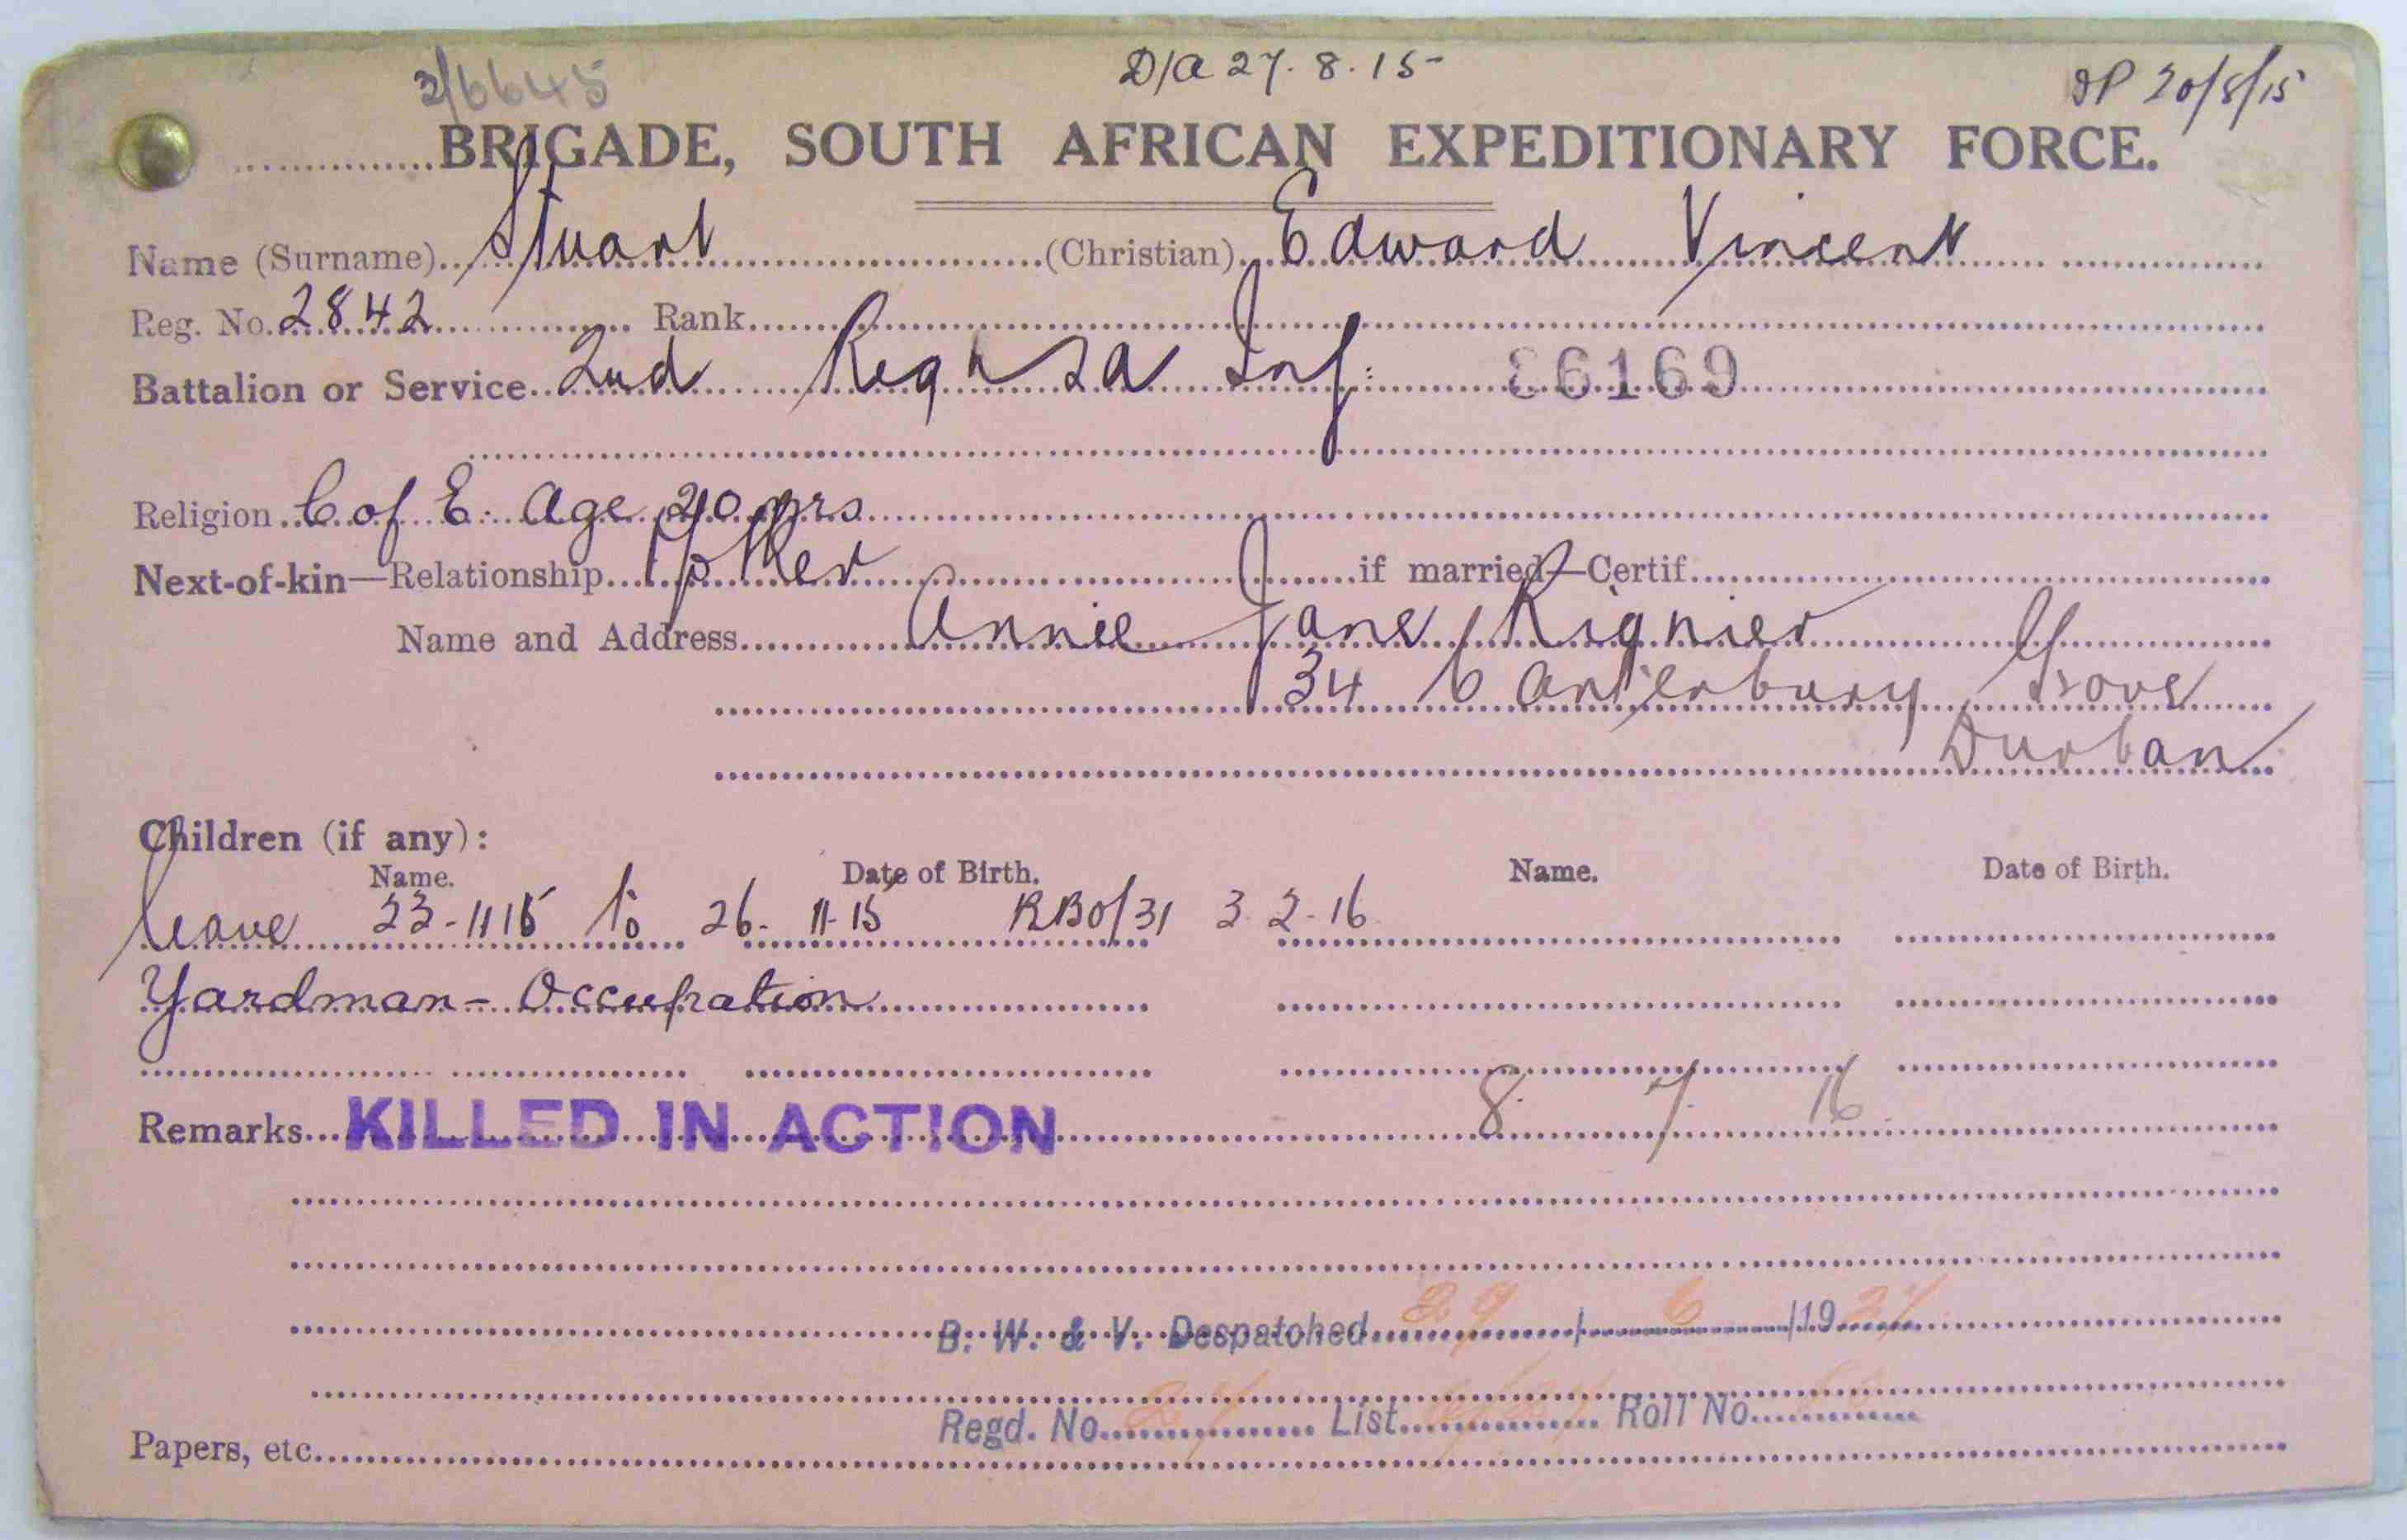 2/6645 D/A 27.8.15 DP 20/8/15
BRIGADE, SOUTH AFRICAN EXPEDITIONARY FORCE.
Name (Surname) Stuart (Christian) Edward Vincent
Reg. No. 2842 Rank
Battalion or Service 2nd Regt SA Inf: 36169
Religion C of E. Age 20 yrs
Next-of-kin—Relationship Mother if married—Certif
Name and Address Annie Jane Rignier
34 Canterbury Grove
Durban
Children (if any):
Name. Date of Birth. Name. Date of Birth.
leave 23-11 15 to 26-11-15 RBO/31 3 2-16
Yardman - Occupation
Remarks KILLED IN ACTION 8. 7. 16
B. W. & V. Despatched 29 / 6 /1927
Regd. No. List Roll No.
Papers, etc.